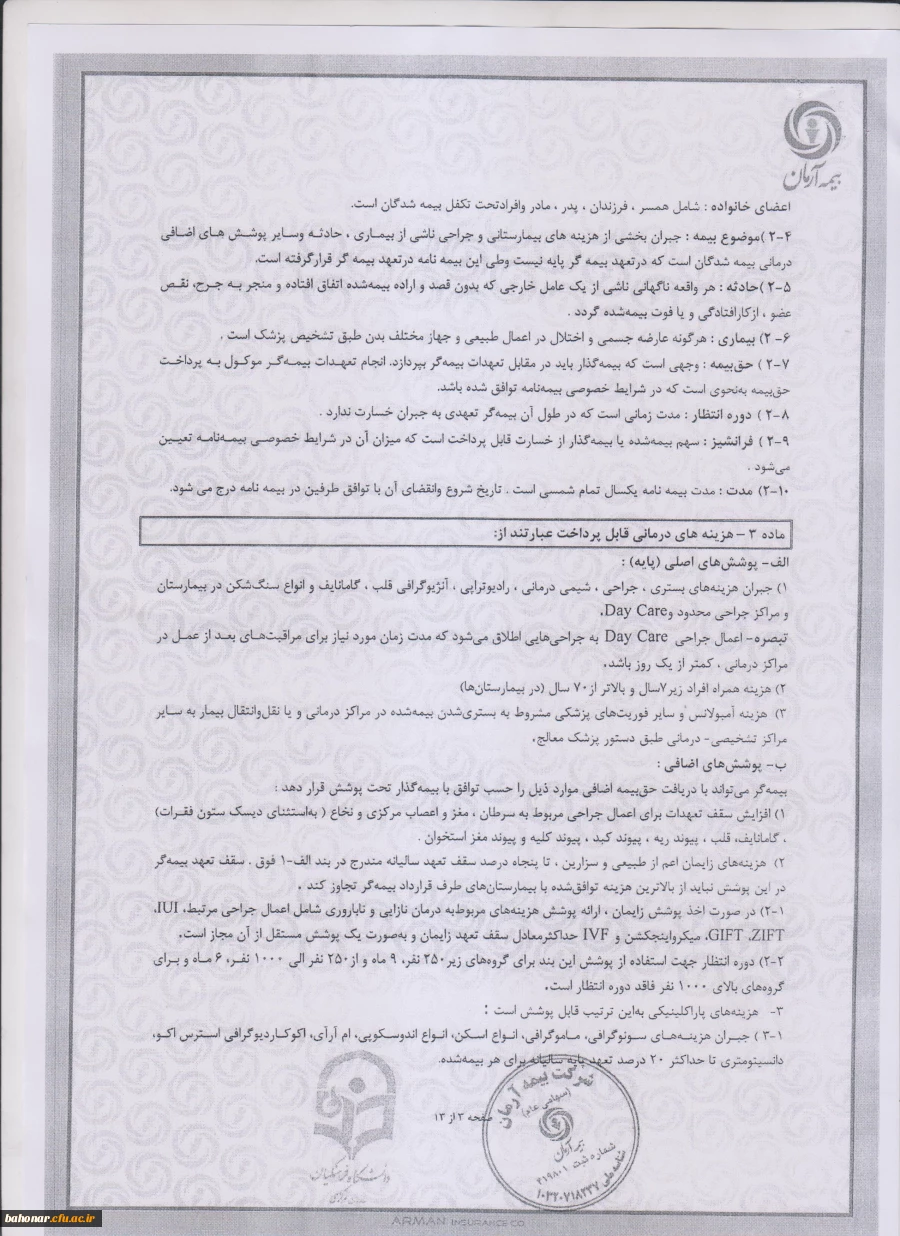 بیمه آرمان
اعضای خانواده : شامل همسر ، فرزندان ، پدر ، مادر وافرادتحت تکفل بیمه شدگان است.
۲-۴ )موضوع بیمه : جبران بخشی از هزینه های بیمارستانی و جراحی ناشی از بیماری ، حادثه وسایر پوشش های اضافی
درمانی بیمه شدگان است که درتعهد بیمه گر پایه نیست وطی این بیمه نامه درتعهد بیمه گر قرارگرفته است.
۲-۵ )حادثه : هر واقعه ناگهانی ناشی از یک عامل خارجی که بدون قصد و اراده بیمه‌شده اتفاق افتاده و منجر به جرح، نقص
عضو ، ازکارافتادگی و یا فوت بیمه‌شده گردد .
۲-۶ ) بیماری : هرگونه عارضه جسمی و اختلال در اعمال طبیعی و جهاز مختلف بدن طبق تشخیص پزشک است .
۲-۷ ) حق‌بیمه : وجهی است که بیمه‌گذار باید در مقابل تعهدات بیمه‌گر بپردازد. انجام تعهدات بیمه‌گر موکول به پرداخت
حق‌بیمه به‌نحوی است که در شرایط خصوصی بیمه‌نامه توافق شده باشد.
۲-۸ ) دوره انتظار : مدت زمانی است که در طول آن بیمه‌گر تعهدی به جبران خسارت ندارد .
۲-۹ ) فرانشیز : سهم بیمه‌شده یا بیمه‌گذار از خسارت قابل پرداخت است که میزان آن در شرایط خصوصی بیمه‌نامه تعیین
می‌شود .
۲-۱۰) مدت : مدت بیمه نامه یکسال تمام شمسی است . تاریخ شروع وانقضای آن با توافق طرفین در بیمه نامه درج می شود.
ماده ۳ – هزینه های درمانی قابل پرداخت عبارتند از:
الف- پوشش‌های اصلی (پایه) :
۱) جبران هزینه‌های بستری ، جراحی ، شیمی درمانی ، رادیوتراپی ، آنژیوگرافی قلب ، گامانایف و انواع سنگ‌شکن در بیمارستان
و مراکز جراحی محدود وDay Care.
تبصره- اعمال جراحی Day Care به جراحی‌هایی اطلاق می‌شود که مدت زمان مورد نیاز برای مراقبت‌های بعد از عمل در
مراکز درمانی ، کمتر از یک روز باشد.
۲) هزینه همراه افراد زیر۷سال و بالاتر از۷۰ سال (در بیمارستان‌ها)
۳) هزینه آمبولانس و سایر فوریت‌های پزشکی مشروط به بستری‌شدن بیمه‌شده در مراکز درمانی و یا نقل‌وانتقال بیمار به سایر
مراکز تشخیصی- درمانی طبق دستور پزشک معالج.
ب- پوشش‌های اضافی :
بیمه‌گر می‌تواند با دریافت حق‌بیمه اضافی موارد ذیل را حسب توافق با بیمه‌گذار تحت پوشش قرار دهد :
۱) افزایش سقف تعهدات برای اعمال جراحی مربوط به سرطان ، مغز و اعصاب مرکزی و نخاع ( به‌استثنای دیسک ستون فقرات)
، گامانایف، قلب ، پیوند ریه ، پیوند کبد ، پیوند کلیه و پیوند مغز استخوان .
۲) هزینه‌های زایمان اعم از طبیعی و سزارین ، تا پنجاه درصد سقف تعهد سالیانه مندرج در بند الف-۱ فوق . سقف تعهد بیمه‌گر
در این پوشش نباید از بالاترین هزینه توافق‌شده با بیمارستان‌های طرف قرارداد بیمه‌گر تجاوز کند .
۲-۱) در صورت اخذ پوشش زایمان ، ارائه پوشش هزینه‌های مربوط‌به درمان نازایی و ناباروری شامل اعمال جراحی مرتبط، IUI،
GIFT ،ZIFT، میکرواینجکشن و IVF حداکثرمعادل سقف تعهد زایمان و به‌صورت یک پوشش مستقل از آن مجاز است.
۲-۲) دوره انتظار جهت استفاده از پوشش این بند برای گروه‌های زیر۲۵۰ نفر، ۹ ماه و از۲۵۰ نفر الی ۱۰۰۰ نفر، ۶ ماه و برای
گروه‌های بالای ۱۰۰۰ نفر فاقد دوره انتظار است.
۳- هزینه‌های پاراکلینیکی به‌این ترتیب قابل پوشش است :
۳-۱ ) جبران هزینه‌های سونوگرافی، ماموگرافی، انواع اسکن، انواع اندوسکوپی، ام آرآی، اکوکاردیوگرافی استرس اکو،
دانسیتومتری تا حداکثر ۲۰ درصد تعهد پایه سالیانه برای هر بیمه‌شده.
صفحه ۲ از ۱۳
شرکت بیمه آرمان
(سهامی عام)
بیمه آرمان
شماره ثبت ۳۱۹۸۰۱
شناسه ملی ۱۰۳۲۰۷۱۸۲۳۷
دانشگاه فرهنگیان
ARMAN INSURANCE CO
bahonar.cfu.ac.ir